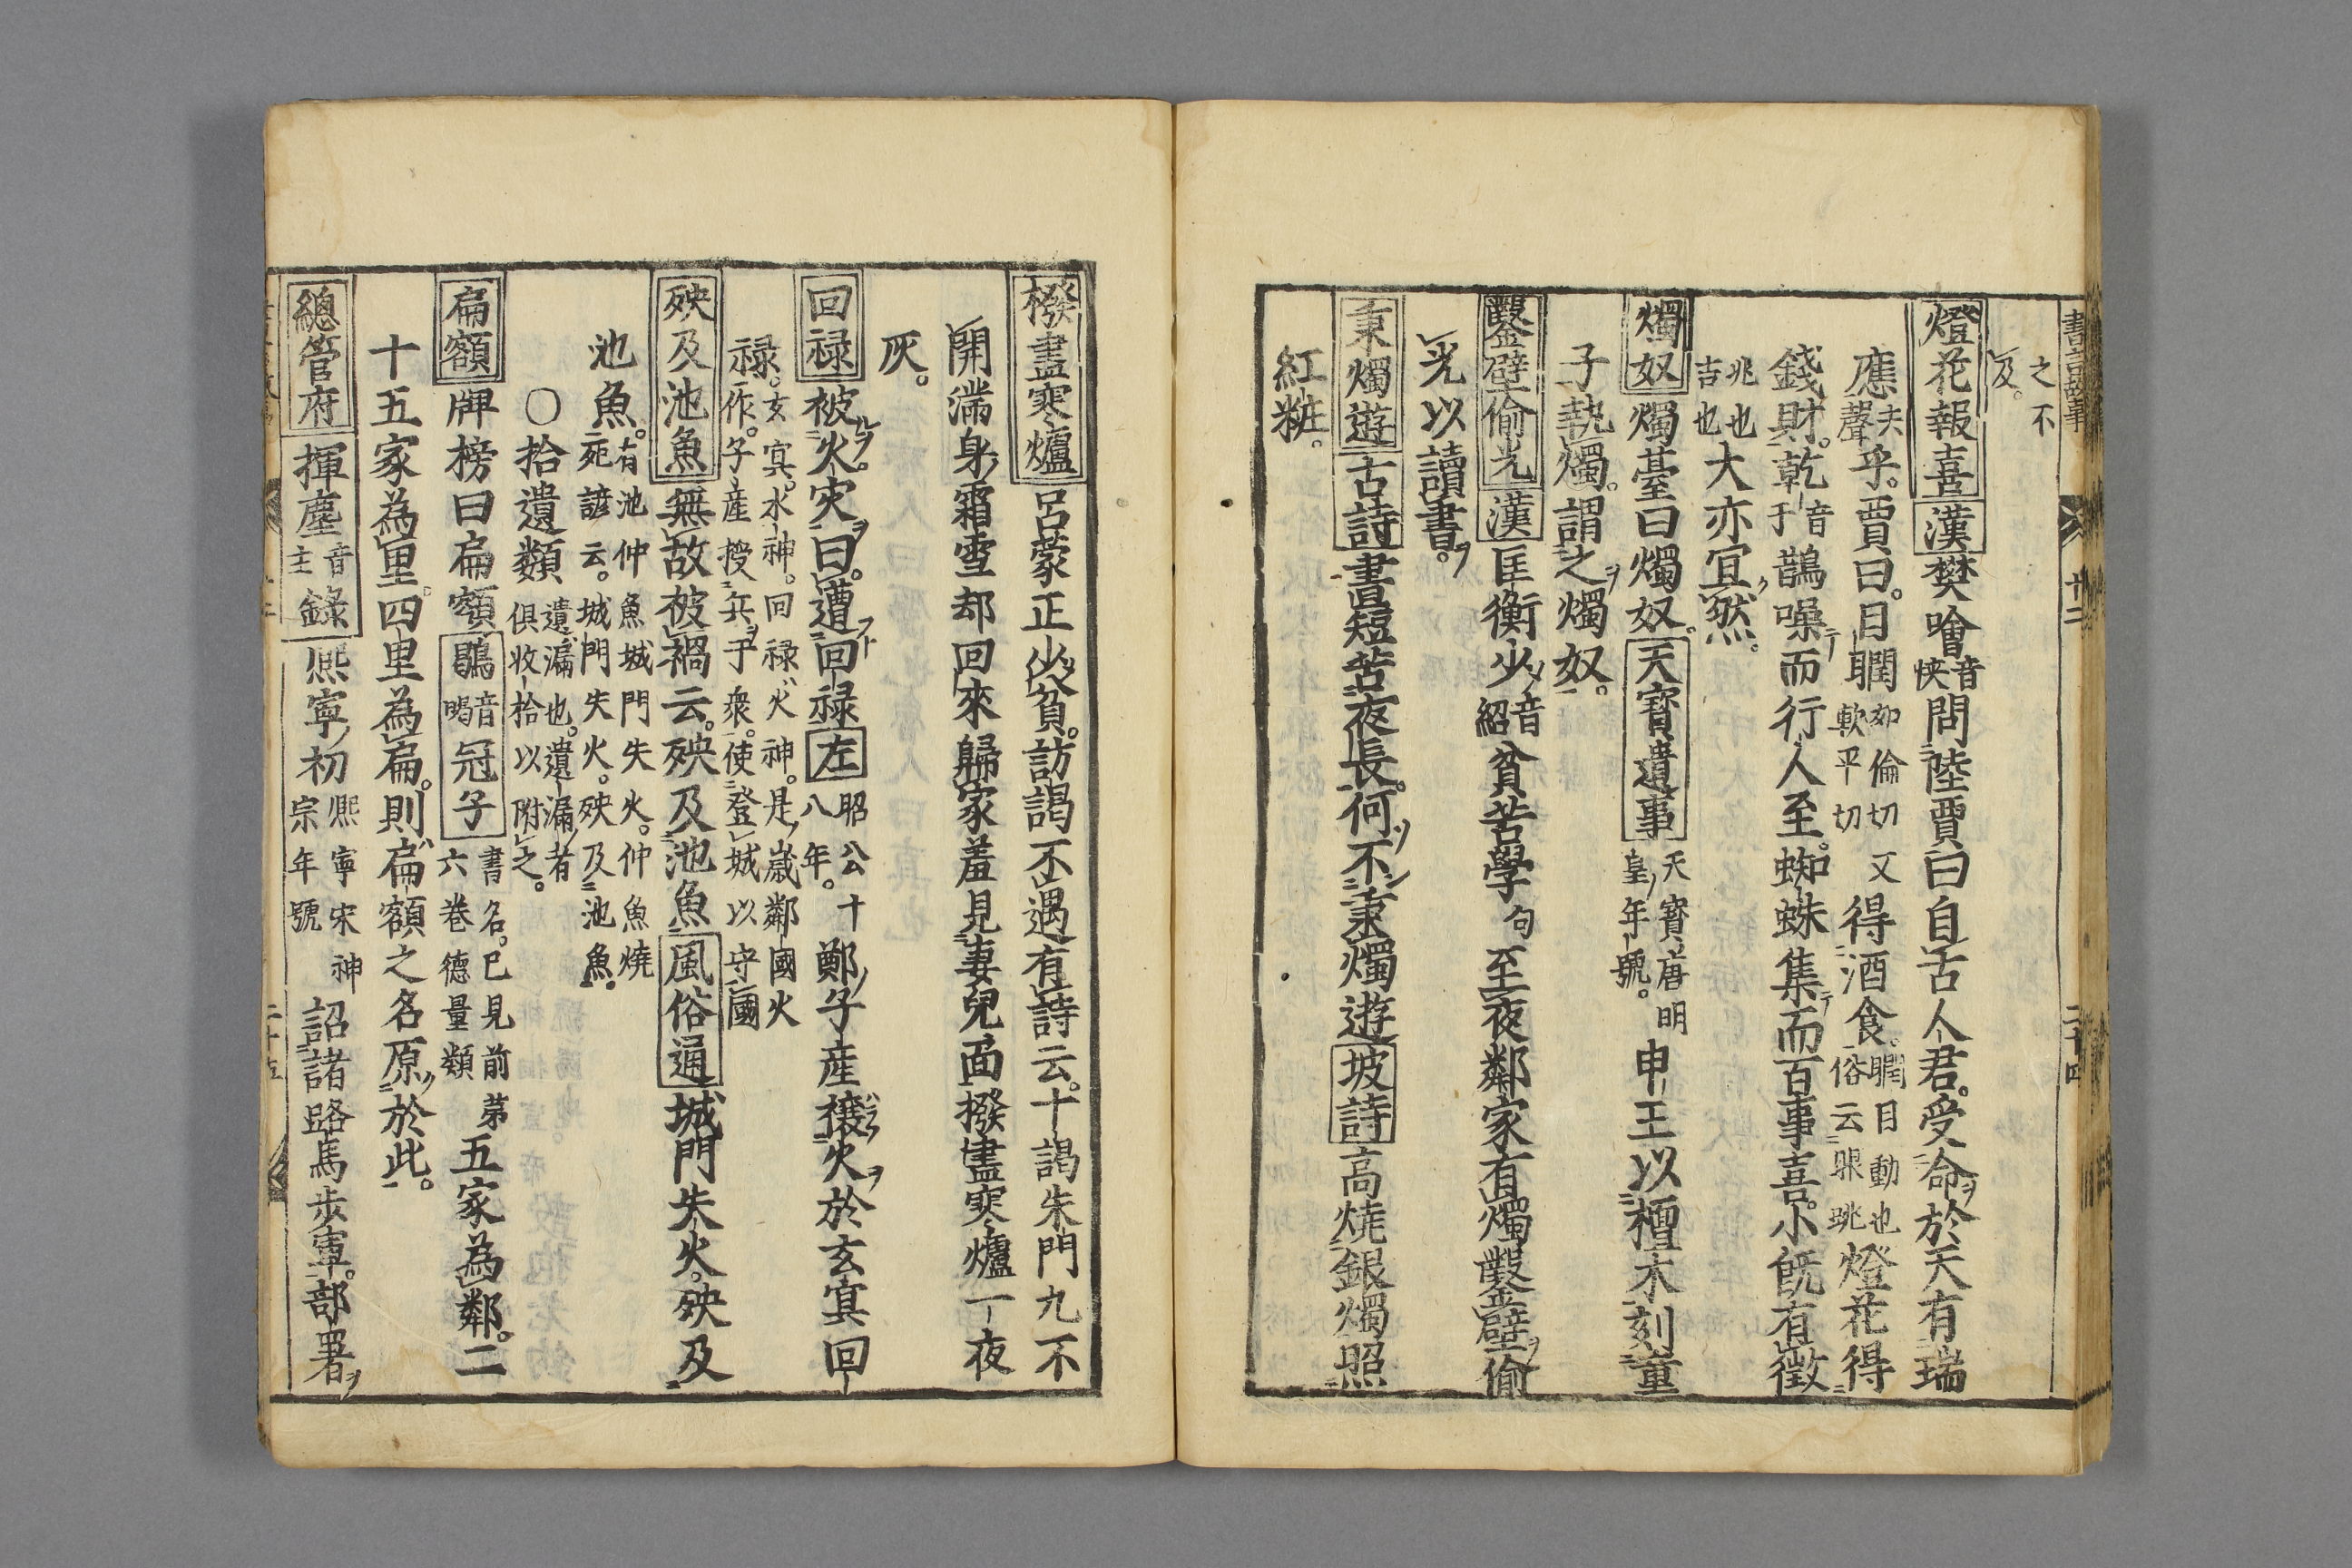 書言故事
之不
及。
燈花報喜 漢 樊噲音快問陸賈曰自古人君。受命於天有瑞
應夫聲乎。賈曰。目瞤如倫切又軟平切得酒食。瞤目動也俗云眼跳燈花得
錢財。乾音干鵲噪而行人至。蜘蛛集而百事喜。小旣有徵
兆也吉也大亦冝然。
燭奴 燭䑓曰燭奴。天寶遺事 天寶唐明皇年號。申王以檀木刻童
子執燭。謂之燭奴。
鑿壁偷光 漢 匡衡少音紹貧苦學句至夜鄰家有燭鑿壁偷
光以讀書。
秉燭遊 古詩 晝短苦夜長。何不秉燭遊 坡詩 高燒銀燭照
紅粧。
撥盡寒爐 呂蒙正少貧。訪謁不遇有詩云。十謁朱門九不
開滿身霜雪却回來歸家羞見妻兒面撥盡寒爐一夜
灰。
回禄 被火灾曰。遭回禄 左 昭公十八年。鄭子產禳火於玄冥回
禄。玄冥。水神。回禄火神。是歲鄰國火作。子產授兵于衆。使登城以守國
殃及池魚 無故被禍云。殃及池魚 風俗通 城門失火。殃及
池魚。有池仲魚城門失火。仲魚燒死諺云。城門失火。殃及池魚。
〇拾遺類遺漏也。遺漏者俱收拾以附之。
扁額 牌榜曰扁額 鶡音曷冠子 書名。已見前第六卷德量類五家為鄰。二
十五家為里。四里為扁。則扁額之名原於此。
總管府 揮麈音主錄 熈寧初熈寧宋神宗年號詔諸路馬步軍。部署